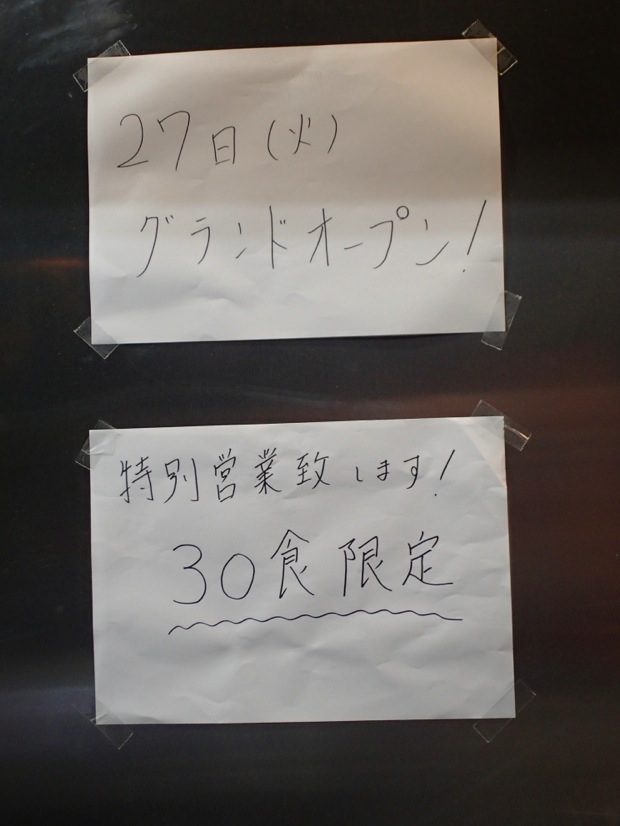 27日(火)
グランドオープン!
特別営業致します!
30食限定